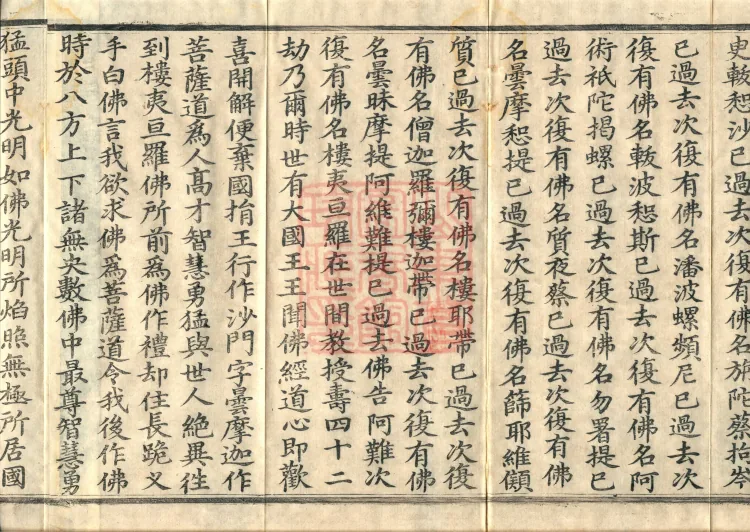 史𢾭恕沙已過去次復有佛名旃陀蔡拘岑
已過去次復有佛名潘波螺頻尼已過去次
復有佛名𢾭波恕斯已過去次復有佛名阿
術祇陀揭螺已過去次復有佛名勿署提已
過去次復有佛名質夜蔡已過去次復有佛
名曇摩恕提已過去次復有佛名篩耶維䫂
質已過去次復有佛名樓耶帶已過去次復
有佛名僧迦羅彌樓迦帶已過去次復有佛
名曇昧摩提阿維難提已過去佛告阿難次
復有佛名樓夷亘羅在世間教授壽四十二
劫乃爾時世有大國王王聞佛經道心即歡
喜開解便棄國捐王行作沙門字曇摩迦作
菩薩道為人高才智慧勇猛與世人絕異往
到樓夷亘羅佛所前為佛作禮却住長跪叉
手白佛言我欲求佛為菩薩道令我後作佛
時於八方上下諸無央數佛中最尊智慧勇
猛頭中光明如佛光明所焰照無極所居國